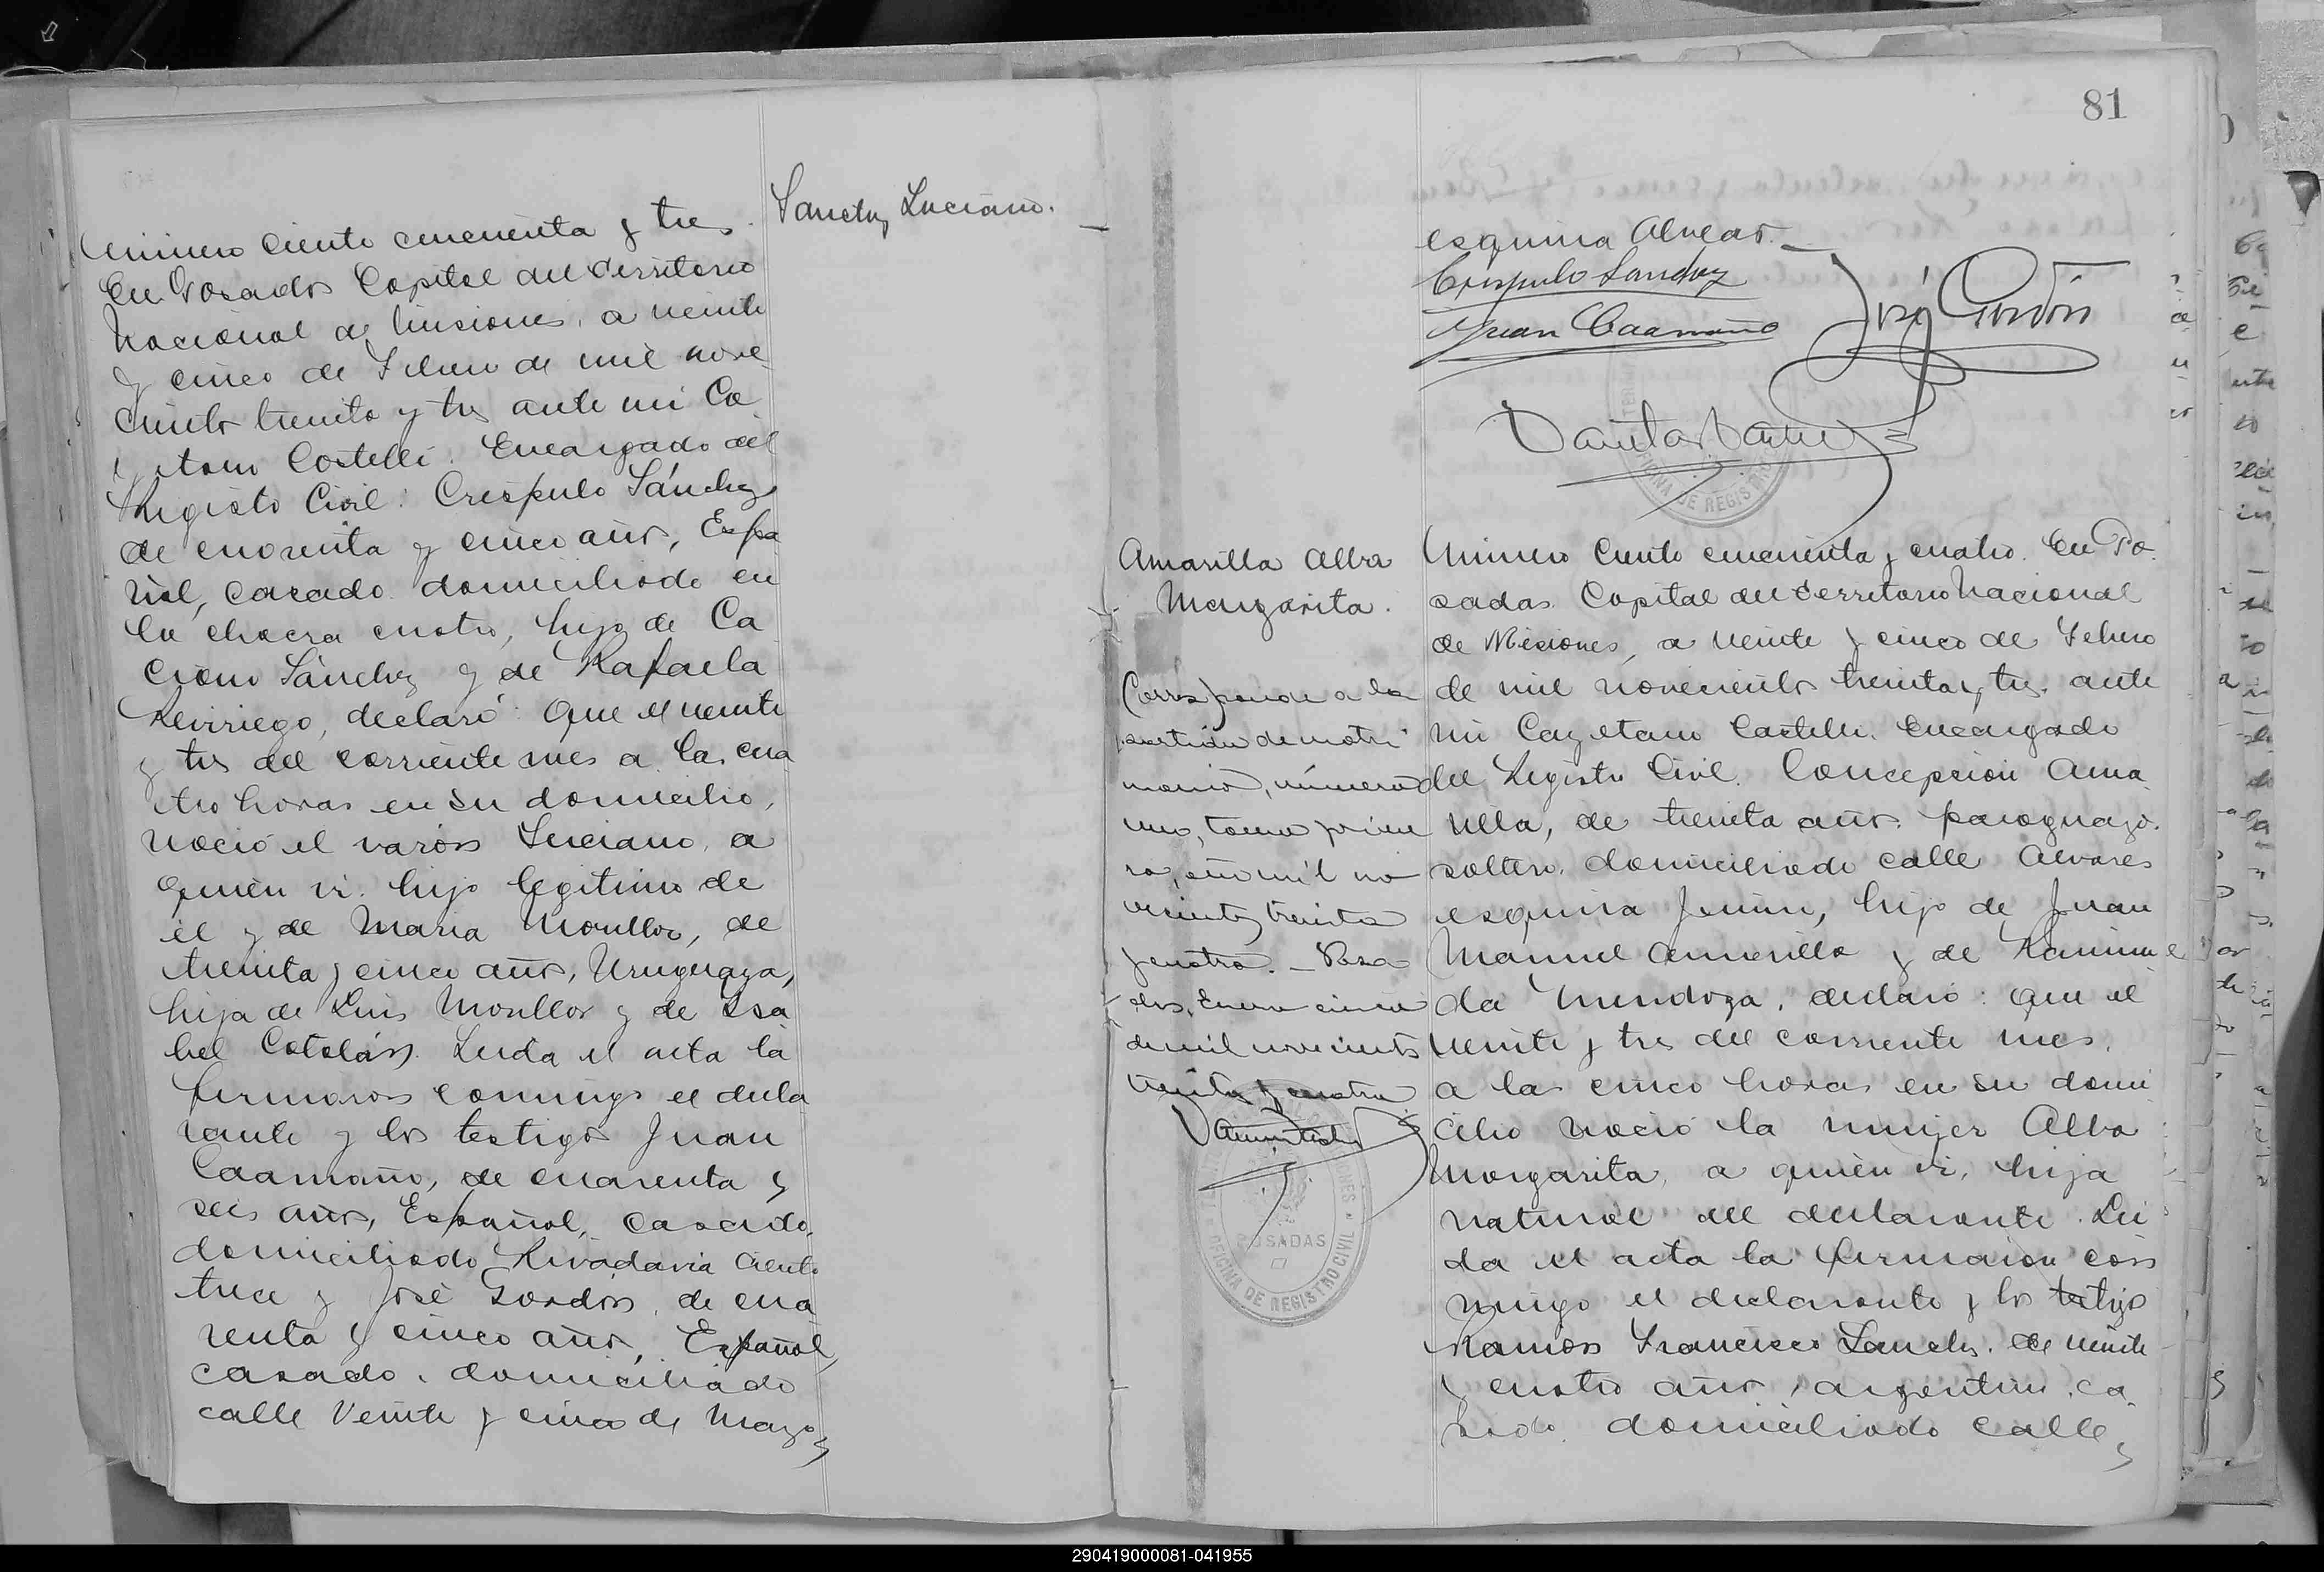 Número ciento cincuenta y tres.
En Posadas Capital del Territorio
Nacional de Misiones, a veinte
y cinco de Febrero de mil nove
cientos treinta y tres ante mi Ca
yetano Castelli. Encargado del
Registro Civil: Crespulo Sánchez
de cuarenta y cinco años, Espa
ñol, casado domiciliado en
la chacra cuatro, hijo de Ca
Sánchez y de Rafaela
declaró: Que el veinte
y tres del corriente mes a las cua
tro horas en su domicilio,
nació el varón Luciano, a
quien vi. hijo legítimo de
él y de María Monllor, de
treinta y cinco años, Uruguaya,
hija de Luis Monllor y de Isa
bel Catalán. Leida el acta la
firmaron conmigo el decla
rante y los testigos Juan
Caamaño, de cuarenta y
seis años, Español, casado,
domiciliado Rivadavia ciento
trece y José Gordón, de cua
renta y cinco años, Español,
casado, domiciliado
calle Veinte y cinco de Mayo
Sanchez Luciano.
81
esquina Alvear.
Críspulo Sanchez
Juan Caamaño
José Gordón
DE REGIS
Amarilla Alba
Margarita.
Corresponde a la
partida de matri
monio, número
uno, tomo prime
ro, año mil no
vecientos treinta
y cuatro. – Posa
das, Enero cinco
de mil novecientos
treinta y cuatro
POSADAS
OFICINA DE REGISTRO CIVIL
Número ciento cincuenta y cuatro. En Po
sadas Capital del Territorio Nacional
de Misiones, a veinte y cinco de Febrero
de mil novecientos treinta y tres. ante
mi Cayetano Castelli. Encargado
del Registro Civil. Concepción Ama
rilla, de treinta años. paraguayo.
soltero. domiciliado calle Alvares
esquina Junin, hijo de Juan
Manuel Amarilla y de
Mendoza, declaró: Que el
veinte y tres del corriente mes.
a las cinco horas en su domi
cilio nació la mujer Alba
Margarita, a quien vi, hija
natural del declarante. Lei
da el acta la firmaron con
migo el declarante y los testigos
Ramón Francisco Sanchez. de veinte
y cuatro años, argentino, ca
sado. domiciliado calle
290419000081-041955